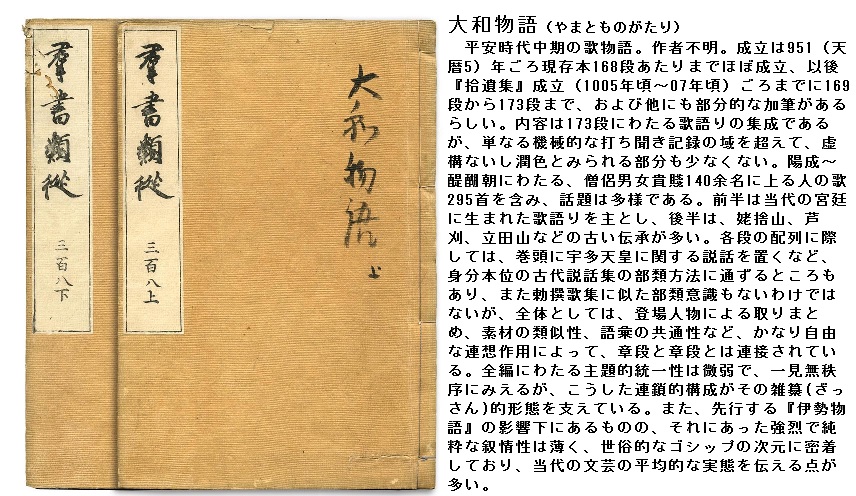 羣書類從
三百八下
羣書類從
三百八上
大和物語
上
大和物語(やまとものがたり)
平安時代中期の歌物語。作者不明。成立は951（天
暦5）年ごろ現存本168段あたりまでほぼ成立、以後
『拾遺集』成立（1005年頃～07年頃）ごろまでに169
段から173段まで、および他にも部分的な加筆がある
らしい。内容は173段にわたる歌語りの集成である
が、単なる機械的な打ち聞き記録の域を超えて、虚
構ないし潤色とみられる部分も少なくない。陽成～
醍醐朝にわたる、僧侶男女貴賤140余名に上る人の歌
295首を含み、話題は多様である。前半は当代の宮廷
に生まれた歌語りを主とし、後半は、姥捨山、芦
刈、立田山などの古い伝承が多い。各段の配列に際
しては、巻頭に宇多天皇に関する説話を置くなど、
身分本位の古代説話集の部類方法に通ずるところも
あり、また勅撰歌集に似た部類意識もないわけでは
ないが、全体としては、登場人物による取りまと
め、素材の類似性、語彙の共通性など、かなり自由
な連想作用によって、章段と章段とは連接されてい
る。全編にわたる主題的統一性は微弱で、一見無秩
序にみえるが、こうした連鎖的構成がその雑纂(ざっ
さん)的形態を支えている。また、先行する『伊勢物
語』の影響下にあるものの、それにあった強烈で純
粋な叙情性は薄く、世俗的なゴシップの次元に密着
しており、当代の文芸の平均的な実態を伝える点が
多い。